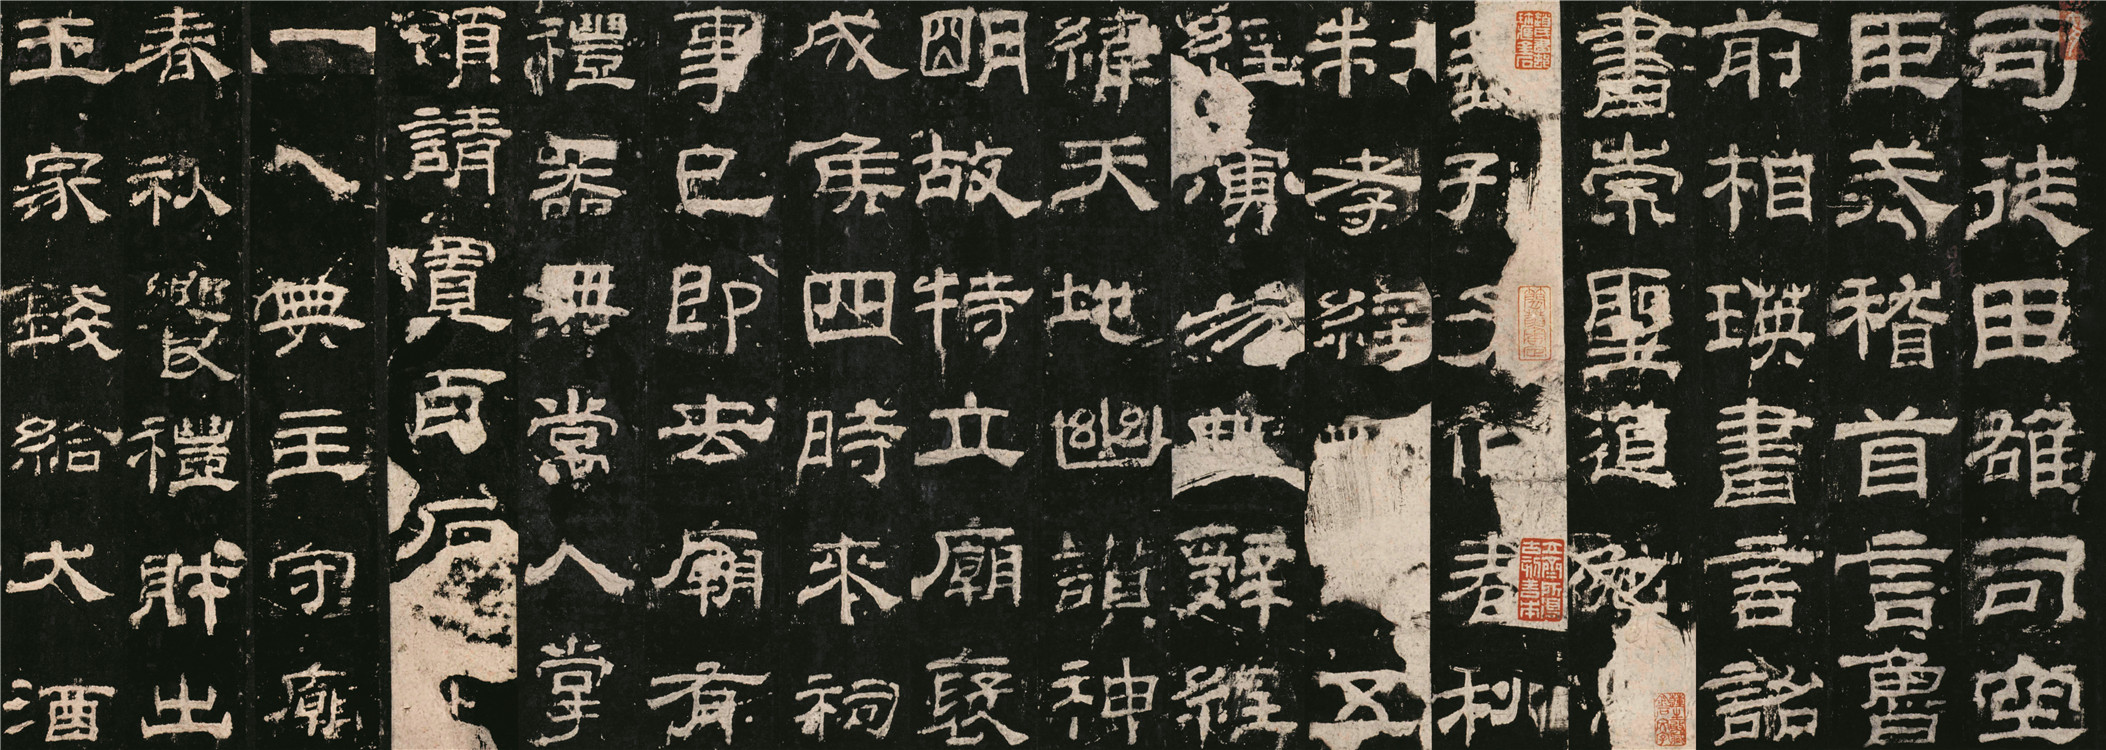 司徒臣雄司空
臣戒稽首言魯
前相瑛書言詔
書崇聖道勉
藝孔子作春秋
制孝經五
經演易辭經
緯天地幽讚神
明故特立廟褒
成侯四時來祠
事已即去廟有
禮器無常人掌
領請置百石
一人典主守廟
春秋饗禮財出
王家錢給大酒